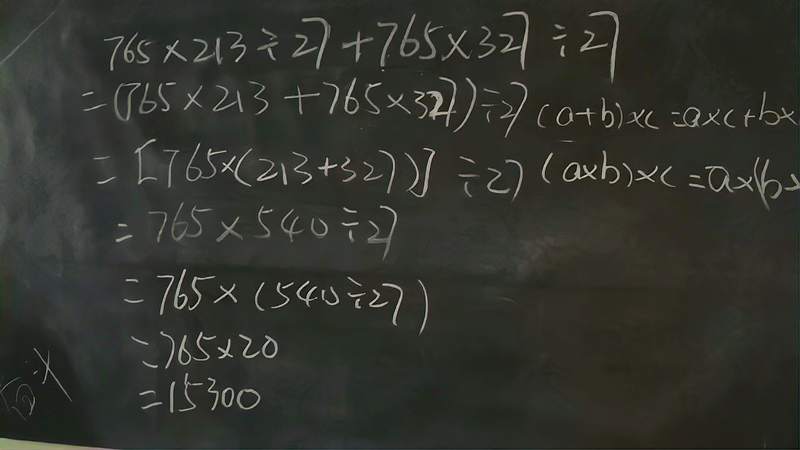 765×213÷27+765×327÷27
=(765×213+765×327)÷27 (a+b)×c=a×c+b×
=[765×(213+327)]÷27 (a×b)×c=a×(b×
=765×540÷27
=765×(540÷27)
=765×20
=15300